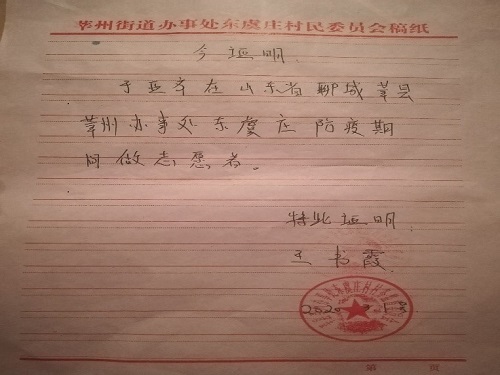 莘州街道办事处东虞庄村民委员会稿纸
今证明:
于亚齐在山东省聊城莘县
莘州办事处东虞庄防疫期
间做志愿者。
特此证明:
王书霞
2020
第 页